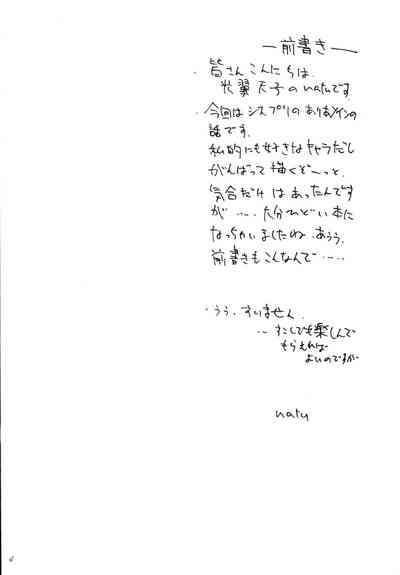 ―前書き―
・皆さんこんにちは、
光翼天子のnatuです
・今回はシスプリのありあメインの
話です。
私的にも好きなキャラだし
がんばって描くぞ〜っと、
気合だけはあったんです
が‥‥大分ひどい本に
なっちゃいましたね、あうう、
前書きもこんなんで‥‥
・うう、すいません、
‥すこしでも楽しんで
もらえれば
よいのですが
natu